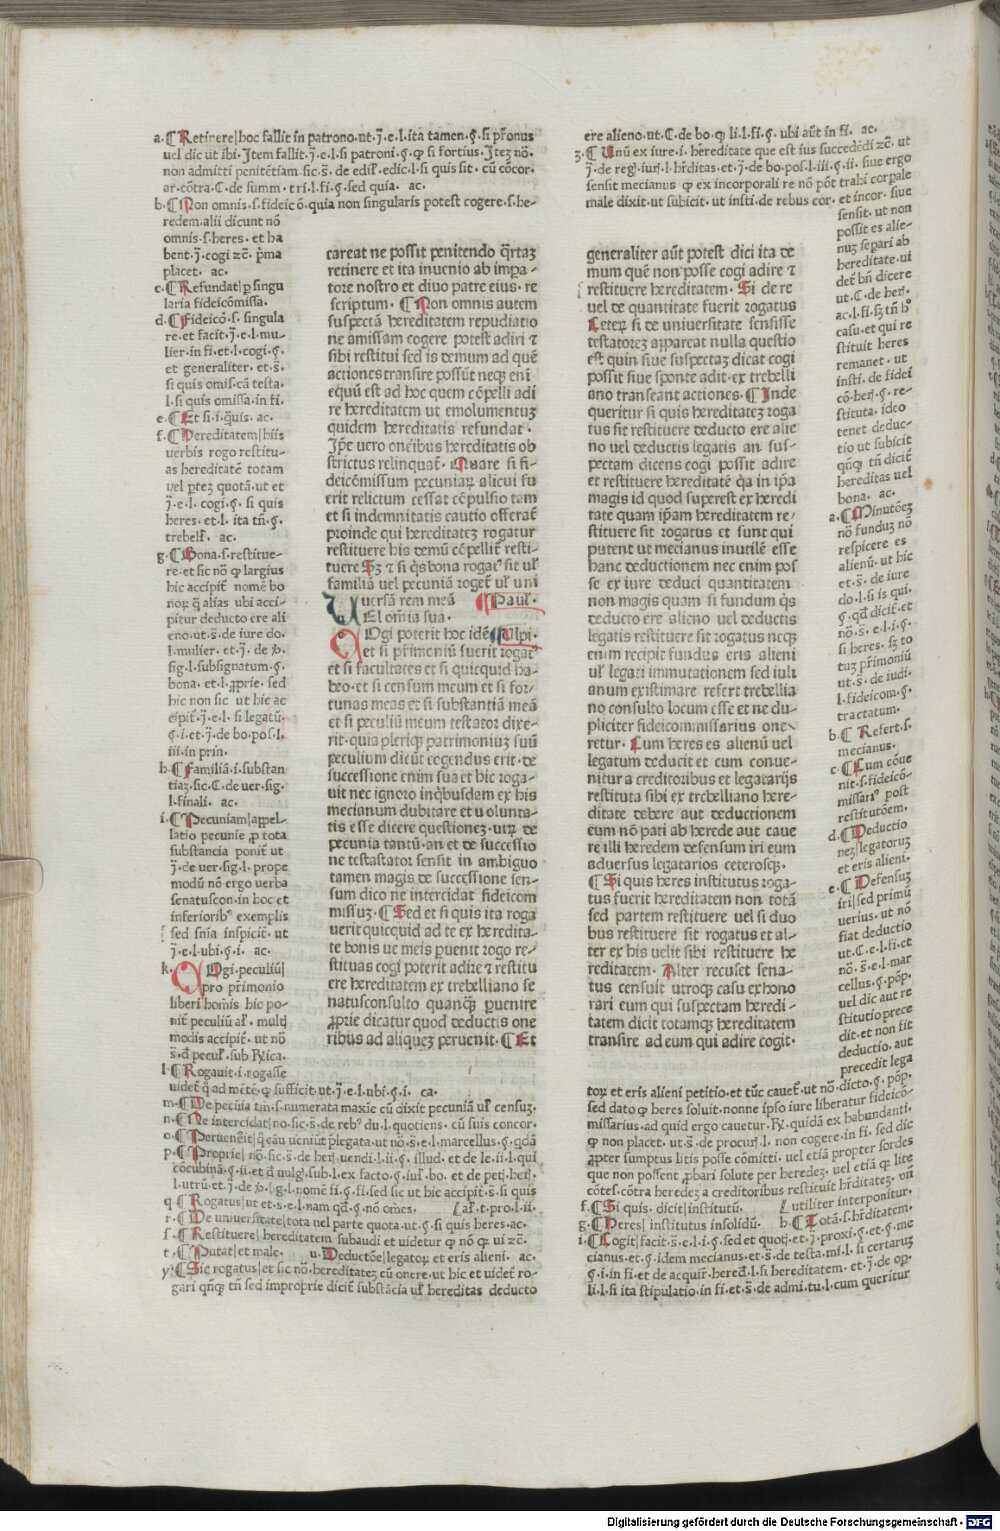 a.¶Retinere|hoc fallit in patrono.ut.j̄.e.l.ita tamen.§.si p̄ronus
uel dic ut ibi.Item fallit.j̄.e.l.si patroni.§.ꝙ si fortius.Itez nō.
non admitti penitētiam.sic.s̄.de edil̕.edic.l.si quis sit. cū cōcor.
ar.cōtra.C.de summ.tri.l.fi.§.sed quia. ac.
b.¶Non omnis.s.fideicō.quia non singularis potest cogere.s.he-
redem.alii dicunt nō
omnis.s.heres. et ha
bent.j̄.cogi zc̄. p̄ma
placet. ac.
c.¶Refundat|ꝑ singu
laria fideicōmissa.
d.¶Fideicō.s. singula
re.et facit.j̄.e.l.mu-
lier.in fi.et.l.cogi.§.
et generaliter.et.s̄.
si quis omis.cā testa.
l.si quis omissa.in fi.
e.¶Et si.i.q̄uis. ac.
f.¶Hereditatem|hiis
uerbis rogo restitu-
as hereditatē totam
uel ꝑtez quotā.ut et
j̄.e.l.cogi.§. si quis
heres.et.l. ita tn̄.§.
trebell̕. ac.
g.¶Bona.s.restitue-
re.et sic nō ꝙ largius
hic accipit̄ nomē bo
noꝝ q̄ alias ubi acci-
pitur deducto ere ali
eno.ut.s̄.de iure do.
l.mulier.et.j̄. de v̕.
sig.l.subsignatum.§.
bona. et.l.ꝓprie. sed
hic non sic ut hic ac
cipit̄.j̄.e.l. si legatū.
§.i.et.j̄.de bo.pos.l.
iii.in prin.
h.¶Familiā.i.substan
tiaz.sic.C.de uer.sig.
l.finali. ac.
i.¶Pecuniam|appel-
latio pecunie ꝓ tota
substancia ponit̄ ut
j̄.de uer.sig.l. prope
modū nō ergo uerba
senatuscon.in hoc et
inferiorib9 exemplis
sed sn̄ia inspicit̄. ut
j̄.e.l.ubi.§.i. ac.
k.COgi.peculiū|
pro p̄rimonio
liberi homis hic po-
nit̄ peculiū al̕. multꝭ
modis accipit̄. ut nō
s̄.d̄ pecul̕.sub R̕ica.
l.¶Rogauit.i.rogasse
uidet̄ q̄ ad mētē.ꝙ sufficit.ut.j̄.e.l.ubi.§.i. ca.
m.¶De pecūia tm̄.s.numerata maxīe cū dixit pecuniā ul̕ censuꝫ.
n.¶Ne intercidat|no.sic.s̄.de reb9 du.l.quotiens. cū suis concor.
o.¶Peruenērit|q̄ eāu ueniūt p̄legata.ut nō.s̄.e.l.marcellus.§.qdā
p.¶Proprie|nō.sic.s̄.de her̕.uendi.l.ii.§. illud. et de le.ii.l.qui
cōcubinā.§.ii.et d̄ uulg̕.sub.l.ex facto.§.iul̕.bo.et de pet̕.her̕.
l.utrū.et.j̄.de v̕.sig.l.nomē fi.§.fi.sed sic ut hic accipit̄.s̄.si quis
q.¶Rogatus|ut et.s̄.e.l.nam qd̄.§.nō omēs. ⁅al̕.t.pro.l.ii.
r.¶De uniuersitate|tota uel parte quota.ut.§.si quis heres.ac.
s.¶Restituere|hereditatem subaudi et uidetur ꝙ nō ꝙ ui zc̄.
t.¶Putat|et male. u.¶Deductōe|legatoꝝ et eris alieni. ac.
y.¶Sic rogatus|et sic nō.hereditatez cū onere.ut hic et uidet̄ ro-
gari qn̄qꝫ tn̄ sed improprie dicit̄ substācia ul̕ hereditas deducto
careat ne possit penitendo q̄rtaꝫ
retinere et ita inuenio ab impa-
tore nostro et diuo patre eius.re
scriptum. ¶Non omnis autem
suspectā hereditatem repudiatio
ne amissam cogere potest adiri ⁊
sibi restitui sed is demum ad quē
actiones transire possūt neqꝫ eni
equū est ad hoc quem cōpelli adi
re hereditatem ut emolumentuꝫ
quidem hereditatis refundat.
Ip̄e uero oneribus hereditatis ob
strictus relinquat̄. ¶Quare si fi-
deicōmissum pecuniaꝝ alicui fu
erit relictum cessat cōpulsio tam
et si indemnitatis cautio offerat̄
proinde qui hereditateꝫ rogatur
restituere his demū cōpellit̄ resti-
tuere Sꝫ ⁊ si q̄s bona rogat9 sit ul̕
familiā uel pecuniā roget̄ ul̕ uni
uersā rem meā ¶Paul̕.
VEl omīa sua.
COgi poterit hoc idē ¶Ulpi.
et si p̄rimoniū fuerit rogat9
et si facultates et si quicquid ha-
beo.et si censum meum et si for-
tunas meas et si substantiā meā
et si peculiū meum testator dixe-
rit.quia pleriqꝫ patrimoniuꝫ suū
peculium dicūt cogendus erit.de
successione enim sua et hic roga-
uit nec ignoro inq̄busdam ex his
mecianum dubitare et uolunta-
tis esse dicere questioneꝫ.utꝝ de
pecunia tantū.an et de successio
ne testastator sensit in ambiguo
tamen magis de successione sen-
sum dico ne intercidat fideicom
missuꝫ. ¶Sed et si quis ita roga
uerit quicquid ad te ex heredita-
te bonis ue meis ꝑuenit rogo re-
stituas cogi poterit adire ⁊ restitu
ere hereditatem ex trebelliano se
natusconsulto quanqꝫ ꝑuenire
ꝓprie dicatur quod deductis one
ribus ad aliqueꝫ peruenit. ¶Et
ere alieno.ut.C.de bo.ꝙ li.l.fi.§. ubi aūt in fi. ac.
z.¶Unū ex iure.i.hereditate que est ius succedēdi zc̄. ut
j̄.de reg.iur̕.l.hr̄ditas.et.j̄.de bo.pos.l.iii.§.ii. siue ergo
sensit mecianus ꝙ ex incorporali re nō pōt trahi corꝑale
male dixit.ut subicit. ut insti.de rebus cor. et incor. siue
sensit. ut non
possit es alie-
nuꝫ separi ab
hereditate.ui
det̄ bn̄ dicere
ut.C.de her̕.
ac.l.fi.sꝫ tn̄ h9
casu et qui re
stituit heres
remanet. ut
insti. de fidei
cō.her̕.§.re-
stituta. ideo
tenet deduc-
tio ut subicit
qn̄qꝫ tn̄ dicit̄
hereditas uel
bona. ac.
a.¶Minutōeꝫ
nō funduꝫ nō
respicere es
alienū.ut hic
et.s̄. de iure
do.l.si is qui.
§.qd̄ dicit̄.et
nō.s̄.e.l.i.§.
si heres.sꝫ to
tuꝫ p̄rimoniū
ut.s̄.de iudi.
l.fideicom.§.
tractatum.
b.¶Refert.s.
mecianus.
c.¶Cum cōue
nit.s.fideicō-
missari9 post
restitutōem.
d.¶Deductio
nez|legatoruꝫ
et eris alieni.
e.¶Defensuꝫ
iri|sed primū
uerius.ut nō
fiat deductio
ut.C.e.l.fi.et
nō.s̄.e.l.mar
cellus.§.pōp.
uel dic aut re
stitutio prece
dit.et non fit
deductio.aut
precedit lega
generaliter aūt potest dici ita de
mum quē non posse cogi adire ⁊
restituere hereditatem. Si de re
uel de quantitate fuerit rogatus
Ceteꝝ si de uniuersitate sensisse
testatoreꝫ appareat nulla questio
est quin siue suspectaꝫ dicat cogi
possit siue sponte adit.ex trebelli
ano transeant actiones. ¶Inde
queritur si quis hereditateꝫ roga
tus sit restituere deducto ere alie
no uel deductis legatis an sus-
pectam dicens cogi possit adire
et restituere hereditatē q̄a in ip̄a
magis id quod superest ex heredi
tate quam ip̄am hereditatem re-
stituere sit rogatus et sunt qui
putent ut mecianus inutilē esse
hanc deductionem nec enim pos
se ex iure deduci quantitatem
non magis quam si fundum q̄s
deducto ere alieno uel deductis
legatis restituere sit rogatus neqꝫ
enim recipit fundus eris alieni
ul̕ legati immutationem sed iuli
anum existimare refert trebellia
no consulto locum esse et ne du-
pliciter fideicommissarius one-
retur. Cum heres es alienū uel
legatum deducit et cum conue-
nitur a creditoribus et legatarijs
restituta sibi ex trebelliano here-
ditate debere aut deductionem
eum nō pati ab herede aut caue
re illi heredem defensum iri eum
aduersus legatarios ceterosqꝫ.
¶Si quis heres institutus roga-
tus fuerit hereditatem non totā
sed partem restituere uel si duo
bus restituere sit rogatus et al-
ter ex his uelit sibi restituere he
reditatem. Alter recuset sena-
tus censuit utroqꝫ casu exhono
rari eum qui suspectam heredi-
tatem dicit totamqꝫ hereditatem
transire ad eum qui adire cogit.
toꝝ et eris alieni petitio.et tūc cauet̄.ut nō.dicto.§.pōp.
sed dato ꝙ heres soluit.nonne ipso iure liberatur fideicō-
missarius.ad quid ergo cauetur.R̕.quidā ex habundanti.
ꝙ non placet.ut.s̄.de procur̕.l. non cogere.in fi. sed dic
ꝓpter sumptus litis posse cōmitti. uel etiā propter sordes
que non possent ꝓbari solute per heredeꝫ. uel etiā ꝙ lite
cōtes.cōtra heredeꝫ a creditoribus restituit hr̄ditateꝫ. un̄
f.¶Si quis. dicit|institutū. ⁅utiliter interponitur.
g.¶Heres| institutus insolidū. h.¶Totā.s.hr̄ditatem.
i.¶Cogit|facit.s̄.e.l.i.§.sed et quot̕.et.j̄.proxi.§.et.§.me
cianus.et.§.idem mecianus.et.s̄.de testa.mi.l.si certaruꝫ
§.i.in fi.et de acquir̄.hered̄.l.si hereditatem. et.j̄.de oꝑ.
li.l.si ita stipulatio.in fi.et.s̄.de admi.tu.l.cum queritur
Digitalisierung gefördert durch die Deutsche Forschungsgemeinschaft - DFG